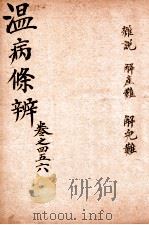 雜說
解產難
解兒難
温病條辨
卷之四五六